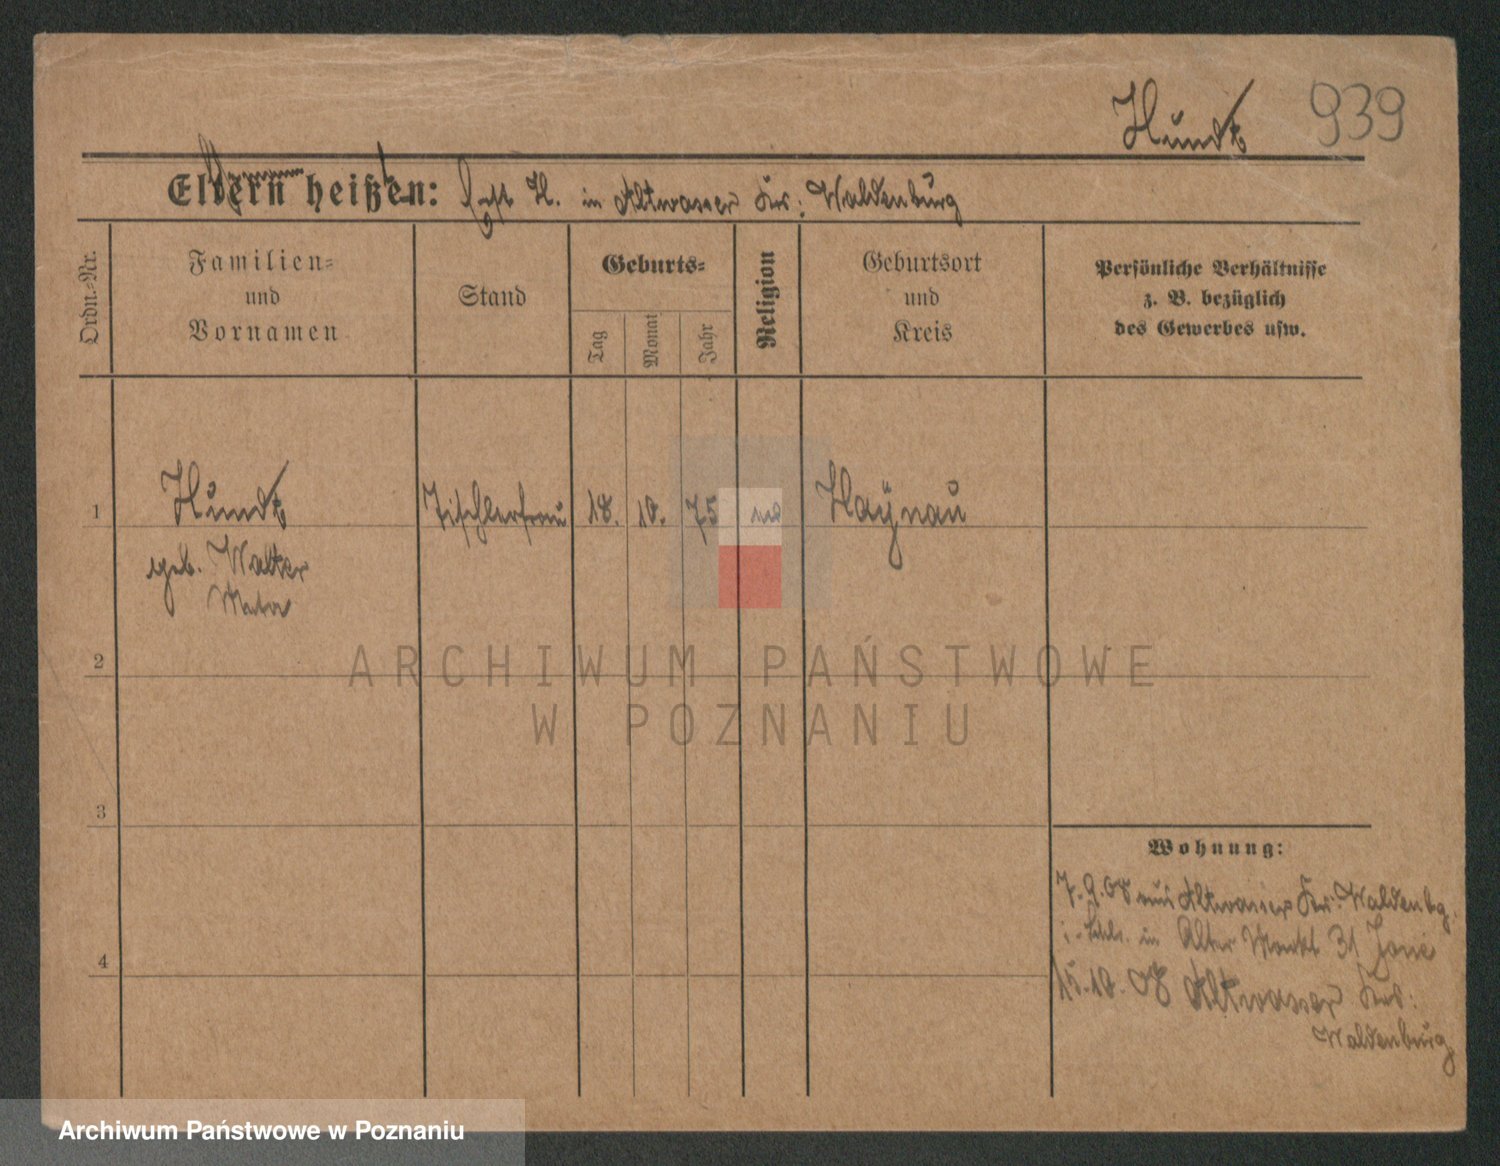 Hundt 939
Eltern heißen: H. in Altwasser Krs: Waldenburg
Ordn.-Nr.
Familien-
und
Vornamen
Stand
Geburts-
Tag
Monat
Jahr
Religion
Geburtsort
und
Kreis
Persönliche Verhältnisse
z. B. bezüglich
des Gewerbes usw.
1 Hundt Tischlerfrau 18. 10. 75 Haynau
geb. Walter
2
3
4
Wohnung:
7.9.08 aus Altwasser Krs. Waldenbg.
in Alter Markt 31
15.10.08 Altwasser Krs:
Waldenburg
ARCHIWUM PAŃSTWOWE
W POZNANIU
Archiwum Państwowe w Poznaniu